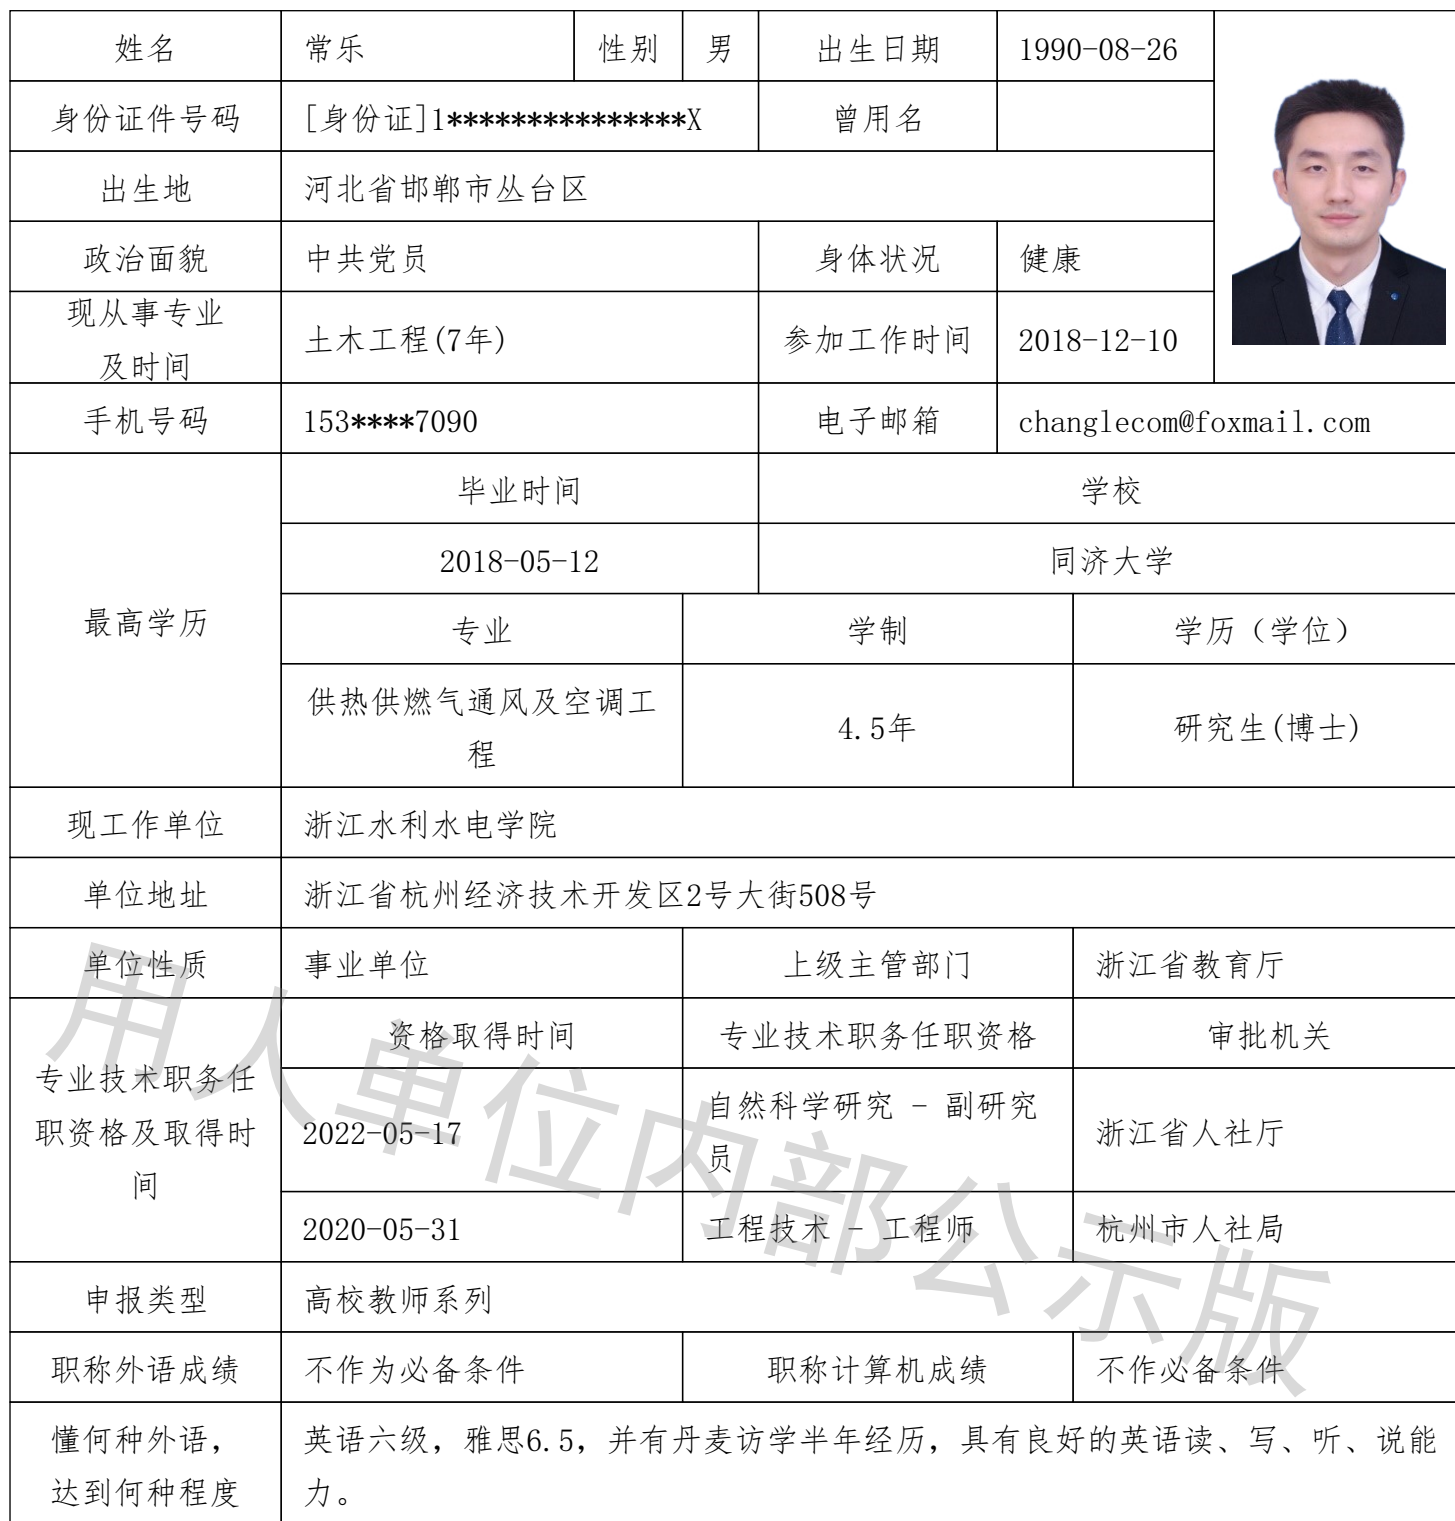 姓名 常乐 性别 男 出生日期 1990-08-26
身份证件号码 [身份证]1***************X 曾用名
出生地 河北省邯郸市丛台区
政治面貌 中共党员 身体状况 健康
现从事专业
及时间
土木工程(7年) 参加工作时间 2018-12-10
手机号码 153****7090 电子邮箱 changlecom@foxmail.com
最高学历
毕业时间 学校
2018-05-12 同济大学
专业 学制 学历（学位）
供热供燃气通风及空调工
程
4.5年 研究生(博士)
现工作单位 浙江水利水电学院
单位地址 浙江省杭州经济技术开发区2号大街508号
单位性质 事业单位 上级主管部门 浙江省教育厅
专业技术职务任
职资格及取得时
间
资格取得时间 专业技术职务任职资格 审批机关
2022-05-17
自然科学研究 - 副研究
员
浙江省人社厅
2020-05-31 工程技术 - 工程师 杭州市人社局
申报类型 高校教师系列
职称外语成绩 不作为必备条件 职称计算机成绩 不作必备条件
懂何种外语，
达到何种程度
英语六级，雅思6.5，并有丹麦访学半年经历，具有良好的英语读、写、听、说能
力。
用人单位内部公示版